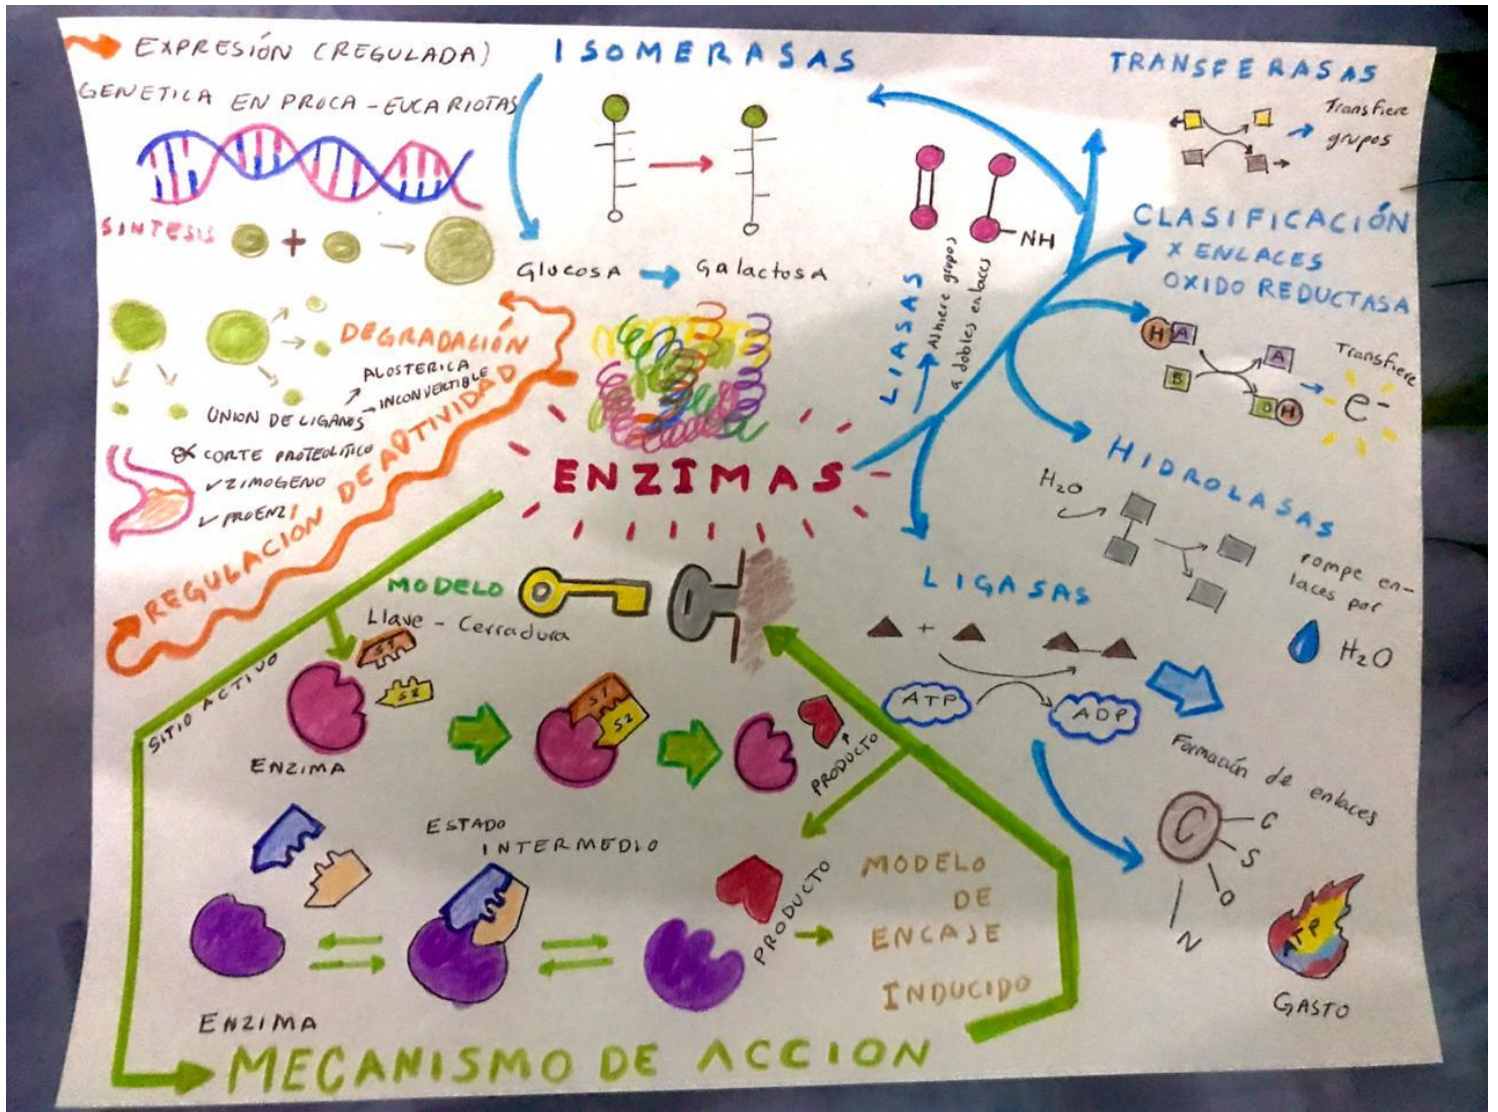 EXPRESIÓN (REGULADA)
GENETICA EN PROCA-EUCARIOTAS
SINTESIS
DEGRADACIÓN
UNION DE LIGANOS
ALOSTERICA
INCONVERTIBLE
CORTE PROTEOLITICO
ZIMOGENO
PROENZI
REGULACION DE ACTIVIDAD
ISOMERASAS
Glucosa
Galactosa
LIASAS
Adhiere grupos
a dobles enlaces
NH
TRANSFERASAS
Transfiere
grupos
CLASIFICACIÓN
X ENLACES
OXIDO REDUCTASA
H A
B
A
B H
Transfiere
e-
HIDROLASAS
H2O
rompe en-
laces por
H2O
ENZIMAS
LIGASAS
+
ATP
ADP
Formación de enlaces
C
C
S
O
N
ATP
GASTO
MODELO
Llave - Cerradura
SITIO ACTIVO
S1
S2
ENZIMA
S1
S2
PRODUCTO
ESTADO
INTERMEDIO
ENZIMA
PRODUCTO
MODELO
DE
ENCAJE
INDUCIDO
MECANISMO DE ACCION